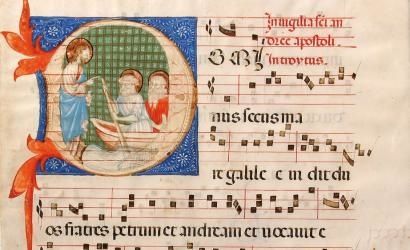 In uigilia sci an
dree apostoli.
D OMI Introytus.
nus secus ma
re galile e ui dit du
os fratres petrum et andream et uocauit e